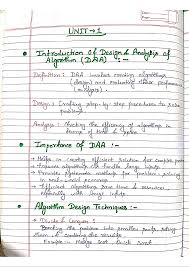 UNIT → 1
• Introduction of Design & Analysis of
Algorithm (DAA) :-
Definition : DAA involves creating algorithms
(design) and evaluating their performance
(analysis).
Design : Crafting step-by-step procedures to solve
problems.
Analysis : Checking the efficiency of algorithms in
terms of time & space
• Importance of DAA :-
→ Helps in creating efficient solution for complex problems
→ Ensures algorithms can handle large inputs
→ Provides systematic methods for problem solving
in real-world scenarios
→ Efficient algorithms save time & resources,
especially with large inputs
• Algorithm Design Techniques :-
→ Divide & Conquer :
Breaking the problem into smaller parts, solving
them, & combining the results
Example :- Merge Sort, Quick Sort